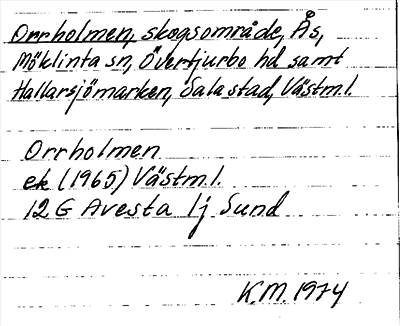 Orrholmen, skogsområde, Ås,
Möklinta sn, Övertjurbo hd samt
Hallarsjömarken, Sala stad, Västml.
Orrholmen
ek (1965) Västml.
12 G Avesta 1j Sund
K.M. 1974